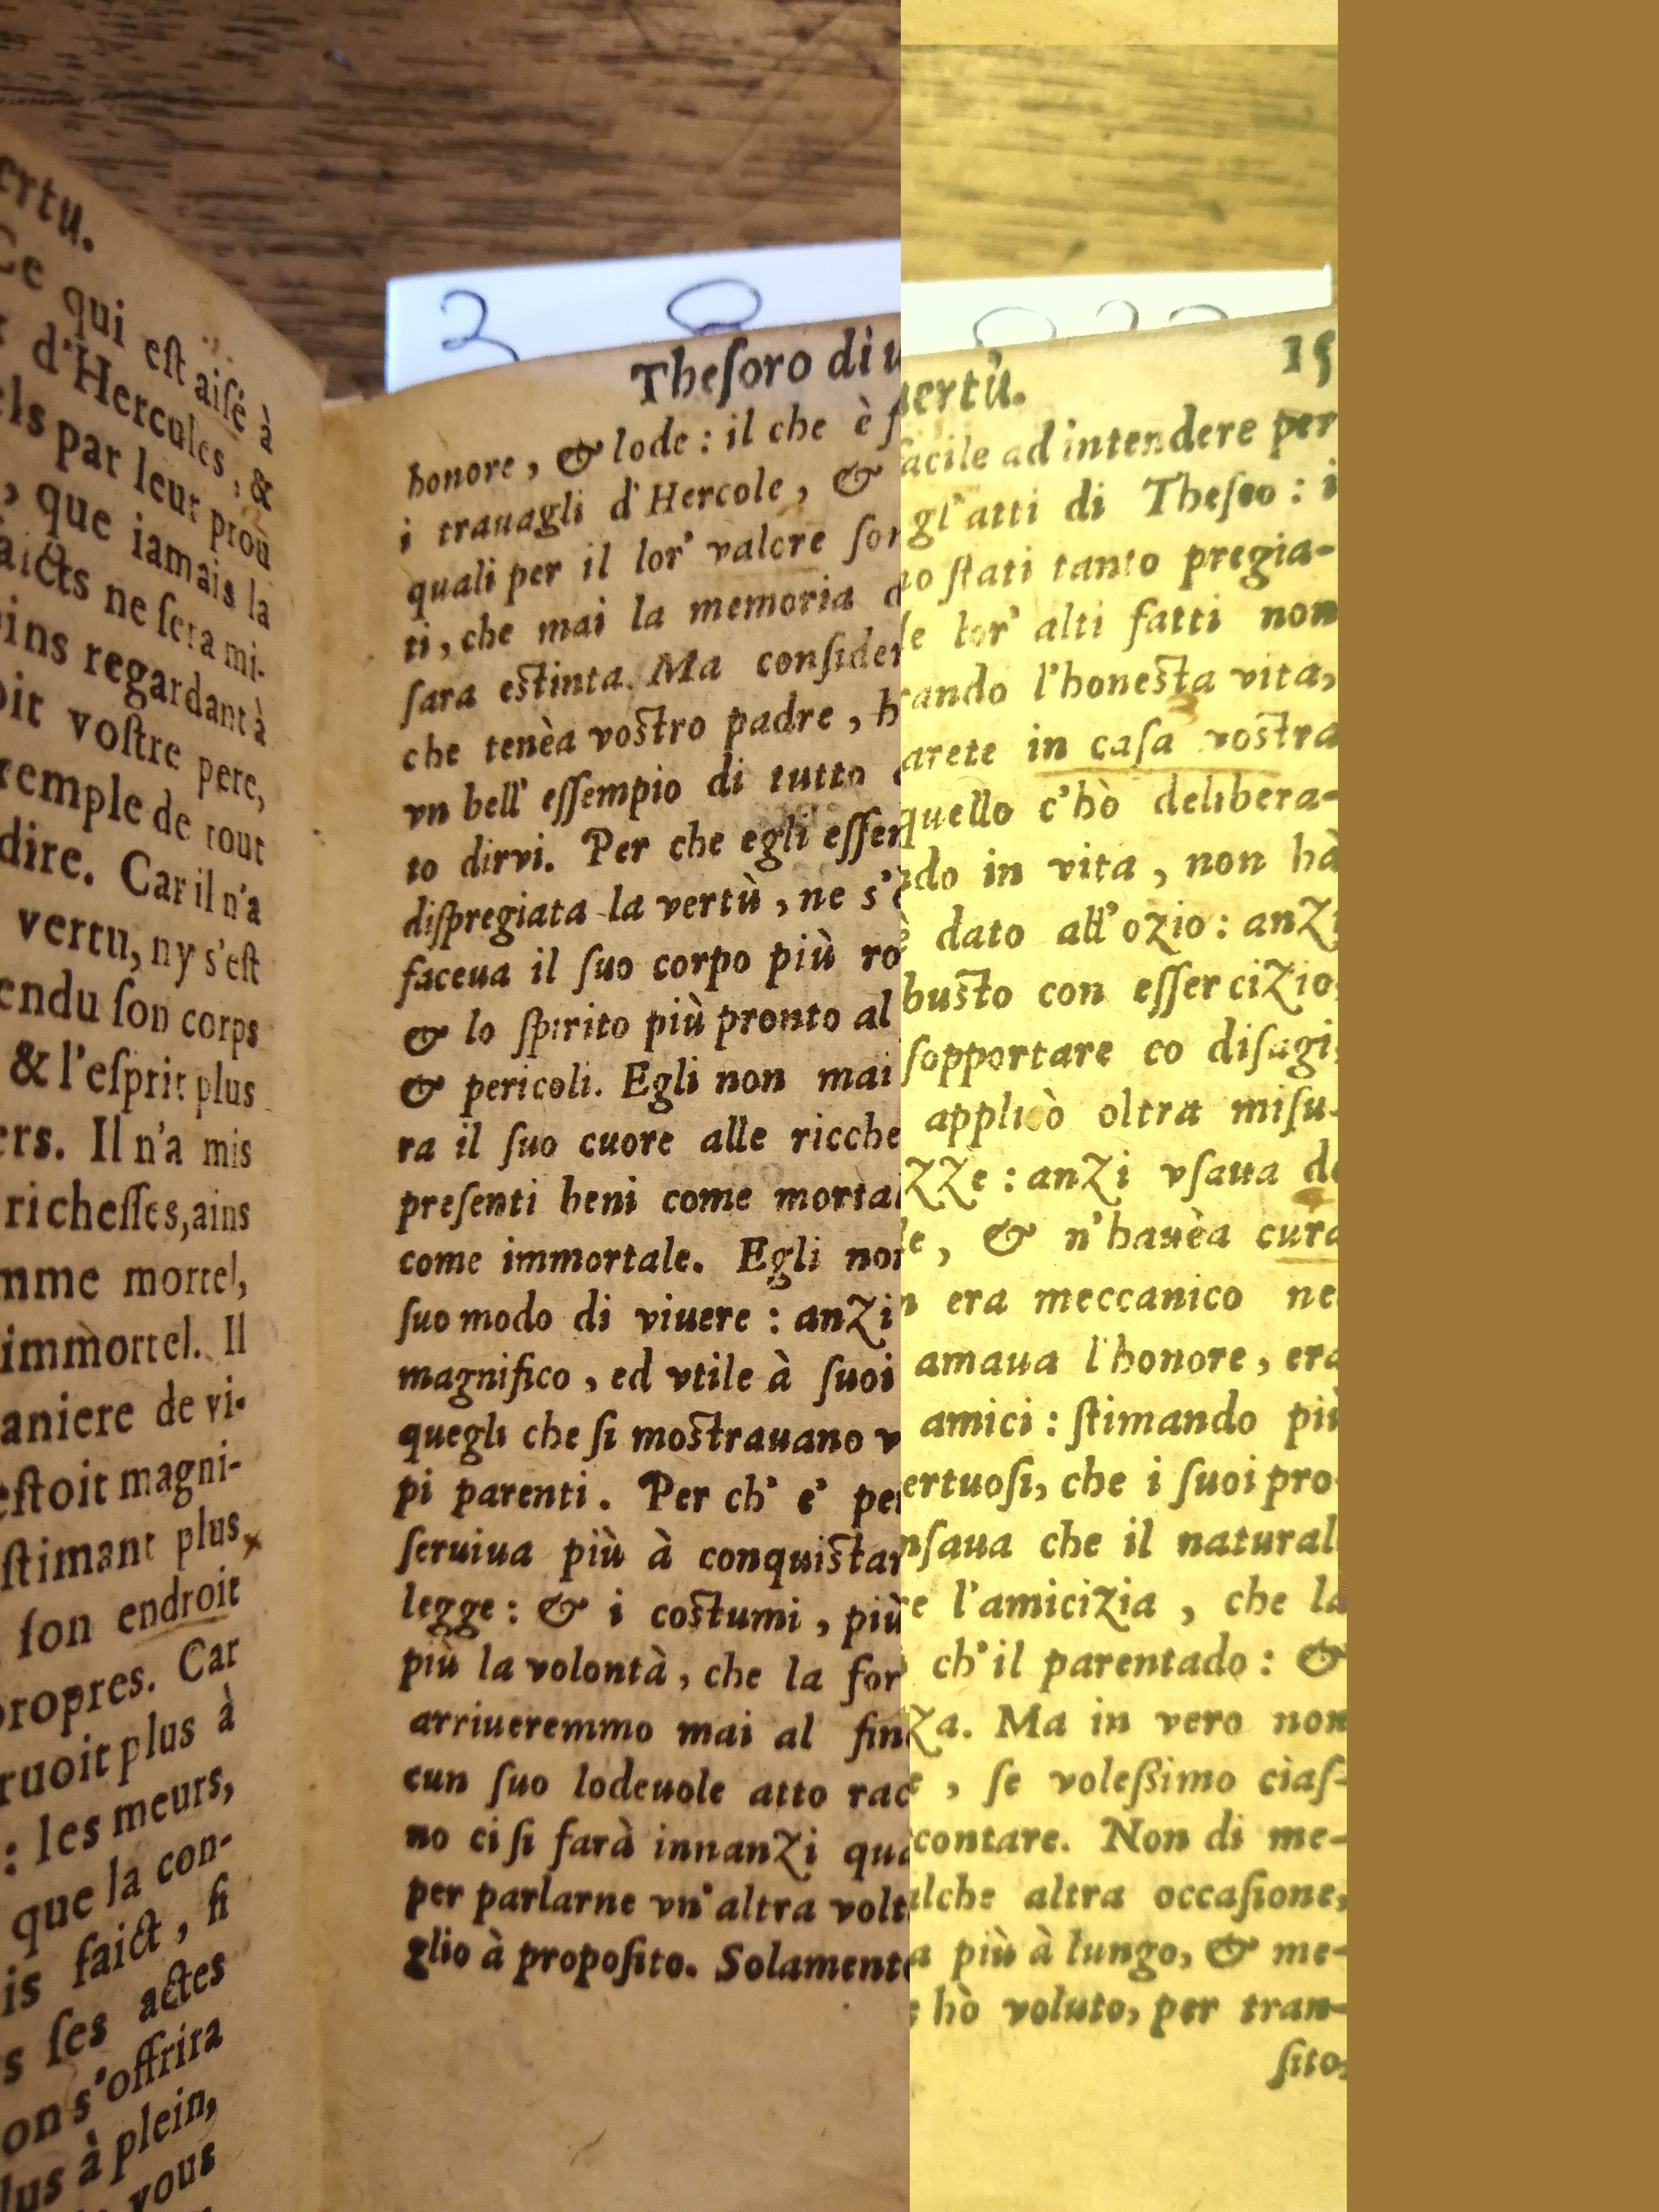 ertu.
Ce qui eſt aiſé à
d'Hercules, &
els par leur prou
, que iamais la
aicts ne ſera mi-
ins regardant à
oit voſtre pere,
xemple de tout
dire. Car il n'a
vertu, ny s'eſt
endu ſon corps
& l'eſprit plus
ers. Il n'a mis
richeſſes, ains
mme mortel,
immortel. Il
aniere de vi-
eſtoit magni-
ſtimant plus
ſon endroit
propres. Car
ruoit plus à
: les meurs,
que la con-
is faict, ſi
s ſes actes
on s'offrira
lus à plein,
vous
Theſoro di uertù. 15
honore, & lode : il che è facile ad intendere per
i trauagli d'Hercole, & gl'atti di Theſeo : i
quali per il lor' valore ſono ſtati tanto pregia-
ti, che mai la memoria de lor' alti fatti non
ſara eſtinta. Ma conſiderando l'honeſta vita,
che tenèa voſtro padre, harete in caſa voſtra
vn bell' eſſempio di tutto quello c'hò delibera-
to dirvi. Per che egli eſſendo in vita, non hà
diſpregiata la vertù, ne s'è dato all'ozio : anzi
faceua il ſuo corpo più robuſto con eſſercizio,
& lo ſpirito più pronto al ſopportare co diſagi,
& pericoli. Egli non mai applicò oltra miſu-
ra il ſuo cuore alle ricchezze : anzi vſaua de
preſenti beni come mortale, & n'hauèa cura
come immortale. Egli non era meccanico nel
ſuo modo di viuere : anzi amaua l'honore, era
magnifico, ed vtile à ſuoi amici : ſtimando più
quegli che ſi moſtrauano vertuoſi, che i ſuoi pro-
pi parenti. Per ch' e' penſaua che il natural
ſeruiua più à conquiſtare l'amicizia, che la
legge : & i coſtumi, più ch'il parentado : &
più la volontà, che la forza. Ma in vero non
arriueremmo mai al fine, ſe voleßimo ciaſ-
cun ſuo lodeuole atto raccontare. Non di me-
no ci ſi farà innanzi qualche altra occaſione,
per parlarne vn'altra volta più à lungo, & me-
glio à propoſito. Solamente hò voluto, per tran-
ſito,